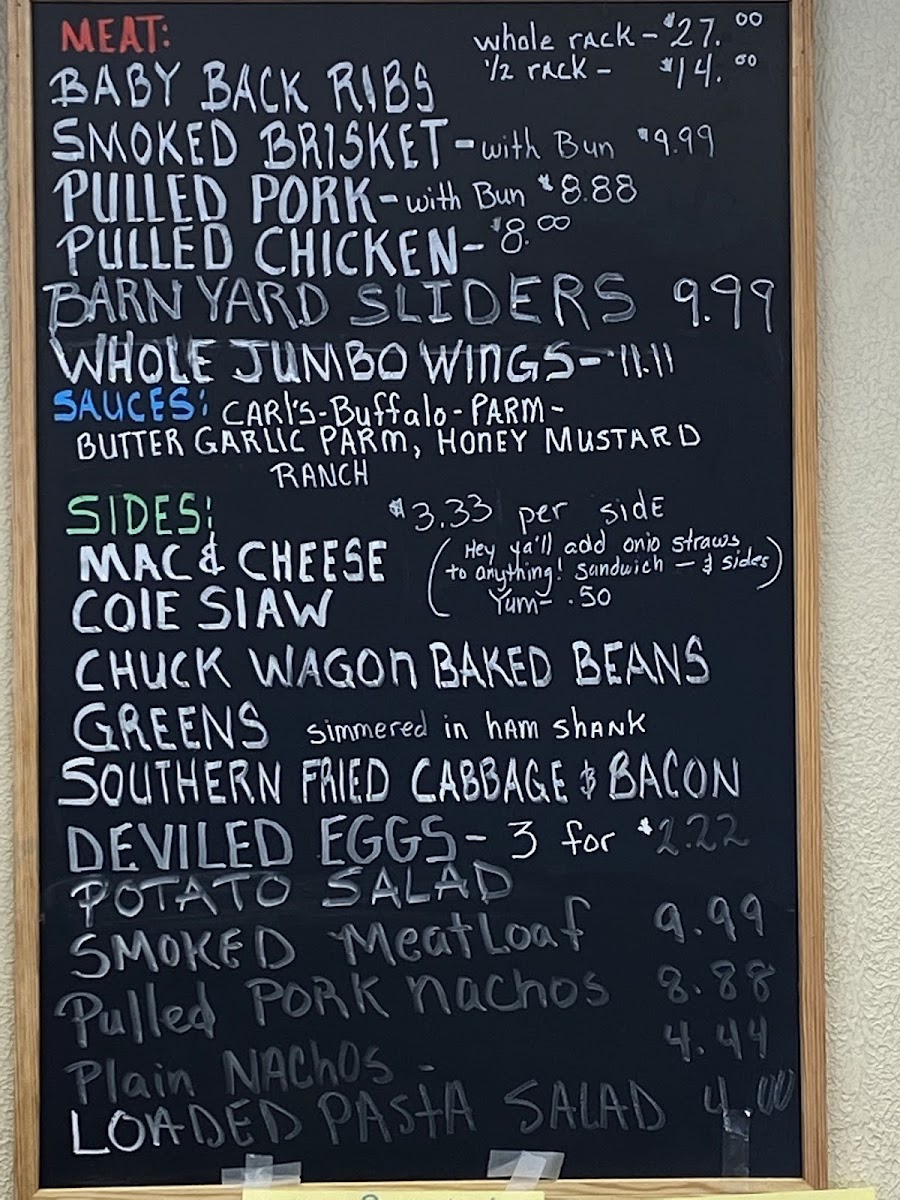 MEAT:
whole rack - $27.00
1/2 rack - $14.00
BABY BACK RIBS
SMOKED BRISKET - with Bun $9.99
PULLED PORK - with Bun $8.88
PULLED CHICKEN - $8.00
BARN YARD SLIDERS 9.99
WHOLE JUMBO WINGS - 11.11
SAUCES: CARI'S - Buffalo - PARM -
BUTTER GARLIC PARM, HONEY MUSTARD
RANCH
SIDES: $3.33 per side
MAC & CHEESE
(Hey ya'll add onio straws
to anything! sandwich — & sides)
Yum - .50
COlE SlAW
CHUCK WAGON BAKED BEANS
GREENS simmered in ham shank
SOUTHERN FRIED CABBAGE & BACON
DEVILED EGGS - 3 for $2.22
POTATO SALAD
SMOKED MeatLoaf 9.99
Pulled PORK nachos 8.88
Plain NACHOS - 4.44
LOADED PASTA SALAD 4.00